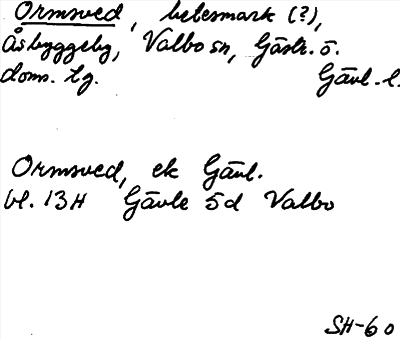 Ormsved, betesmark (?),
Åsbyggeby, Valbo sn, Gästr. ö.
doms. tg. Gävl. l.
Ormsved, ek Gävl.
bl. 13H Gävle 5d Valbo
SH-60